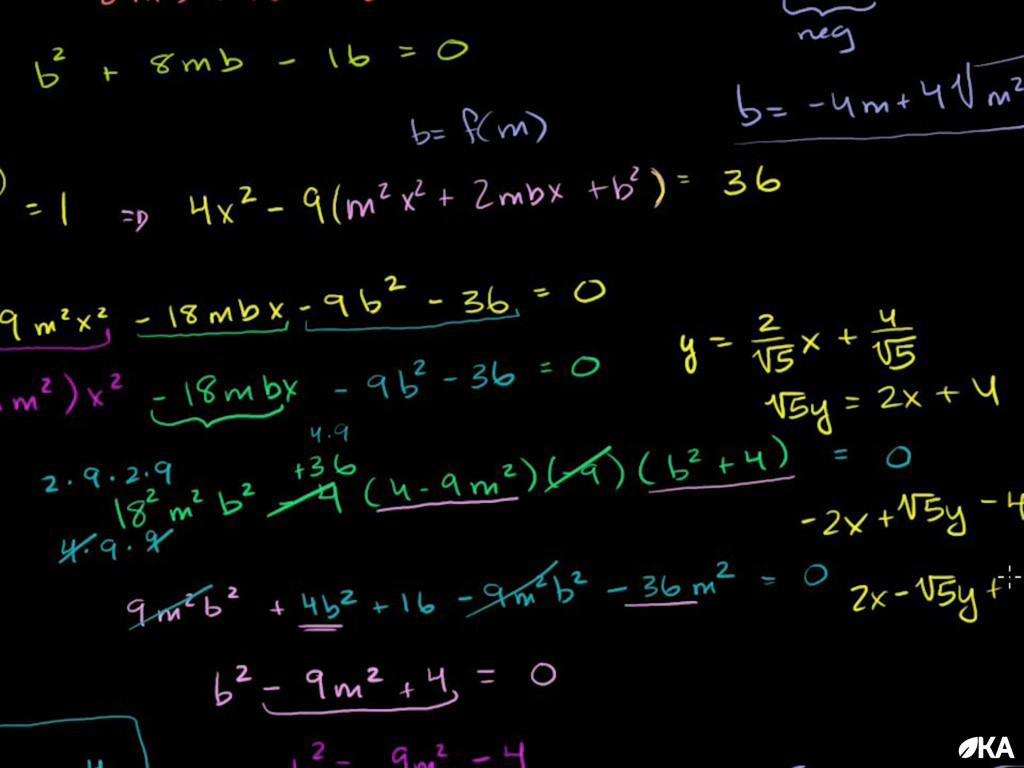 b² + 8mb - 16 = 0
neg
b = -4m + 4√m²
b = f(m)
) = 1 ⇒ 4x² - 9(m²x² + 2mbx + b²) = 36
9m²x² - 18mbx - 9b² - 36 = 0
m²)x² - 18mbx - 9b² - 36 = 0
y = 2/√5 x + 4/√5
√5y = 2x + 4
4·9
2·9·2·9 +36
18²m²b² - 9 (4 - 9m²)(-9)(b² + 4) = 0
4·9·9
-2x + √5y - 4
9m²b² + 4b² + 16 - 9m²b² - 36m² = 0
2x - √5y +
b² - 9m² + 4 = 0
b² = 9m² - 4
KA